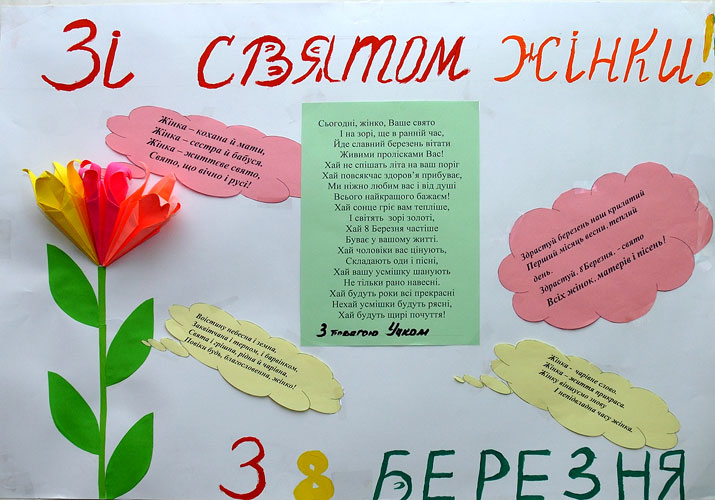 Зі святом жінки!
Жінка – кохана й мати,
Жінка – сестра й бабуся.
Жінка – життєве свято,
Свято, що вічно і русі!
Сьогодні, жінко, Ваше свято
І на зорі, ще в ранній час,
Йде славний березень вітати
Живими пролісками Вас!
Хай не спішать літа на ваш поріг
Хай повсякчас здоров'я прибуває,
Ми ніжно любим вас і від душі
Всього найкращого бажаєм!
Хай сонце гріє вам тепліше,
І світять зорі золоті,
Хай 8 Березня частіше
Буває у вашому житті.
Хай чоловіки вас цінують,
Складають оди і пісні,
Хай вашу усмішку шанують
Не тільки рано навесні.
Хай будуть роки всі прекрасні
Нехай усмішки будуть рясні,
Хай будуть щирі почуття!
З повагою Учком
Здрастуй березень наш крилатий
Перший місяць весни, теплий
день.
Здрастуй, 8Березня, - свято
Всіх жінок, матерів і пісень!
Воістину небесна і земна.
Заквітчана і терном, і барвінком,
Свята і грішна, рідна й чарівна,
Повіки будь, благословенна, жінко!
Жінка - чарівне слово.
Жінка – життя прикраса.
Жінку вшануємо знову
І непідвладна часу жінка.
З 8 БЕРЕЗНЯ